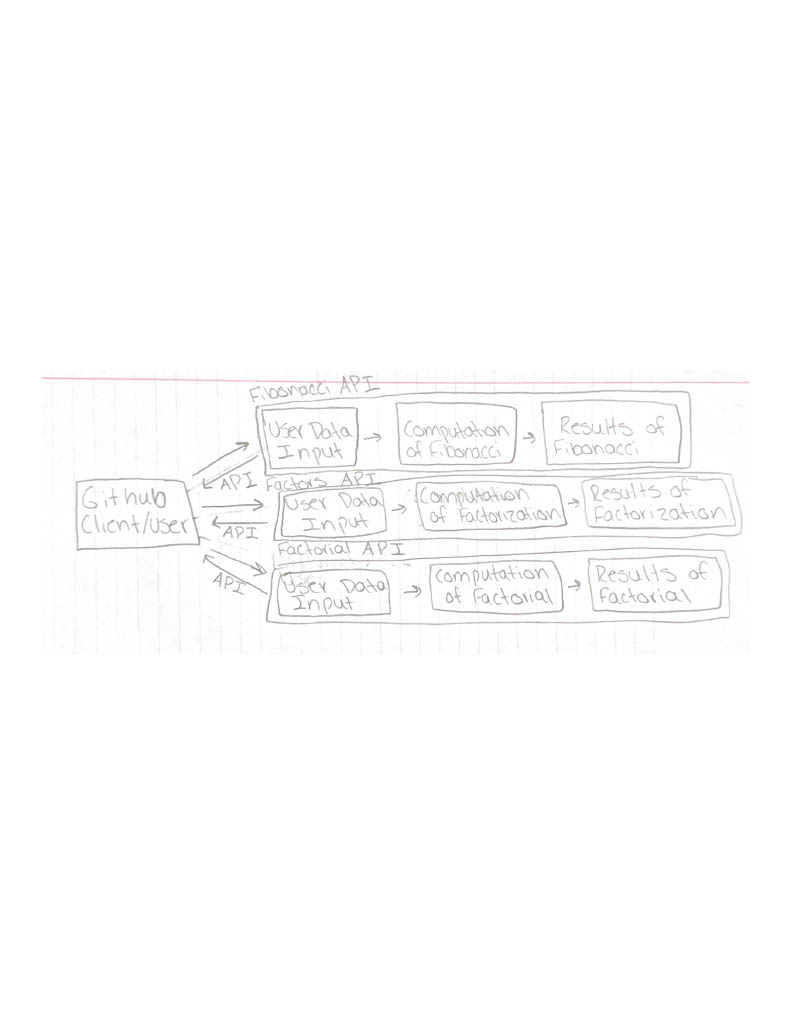 Fibonacci API
User Data
Input
Computation
of Fibonacci
Results of
Fibonacci
API
Github
Client/User
Factors API
User Data
Input
Computation
of Factorization
Results of
Factorization
API
Factorial API
User Data
Input
Computation
of Factorial
Results of
Factorial
API